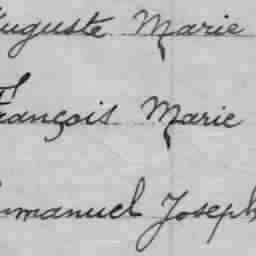 Auguste Marie
François Marie
Emmanuel Joseph